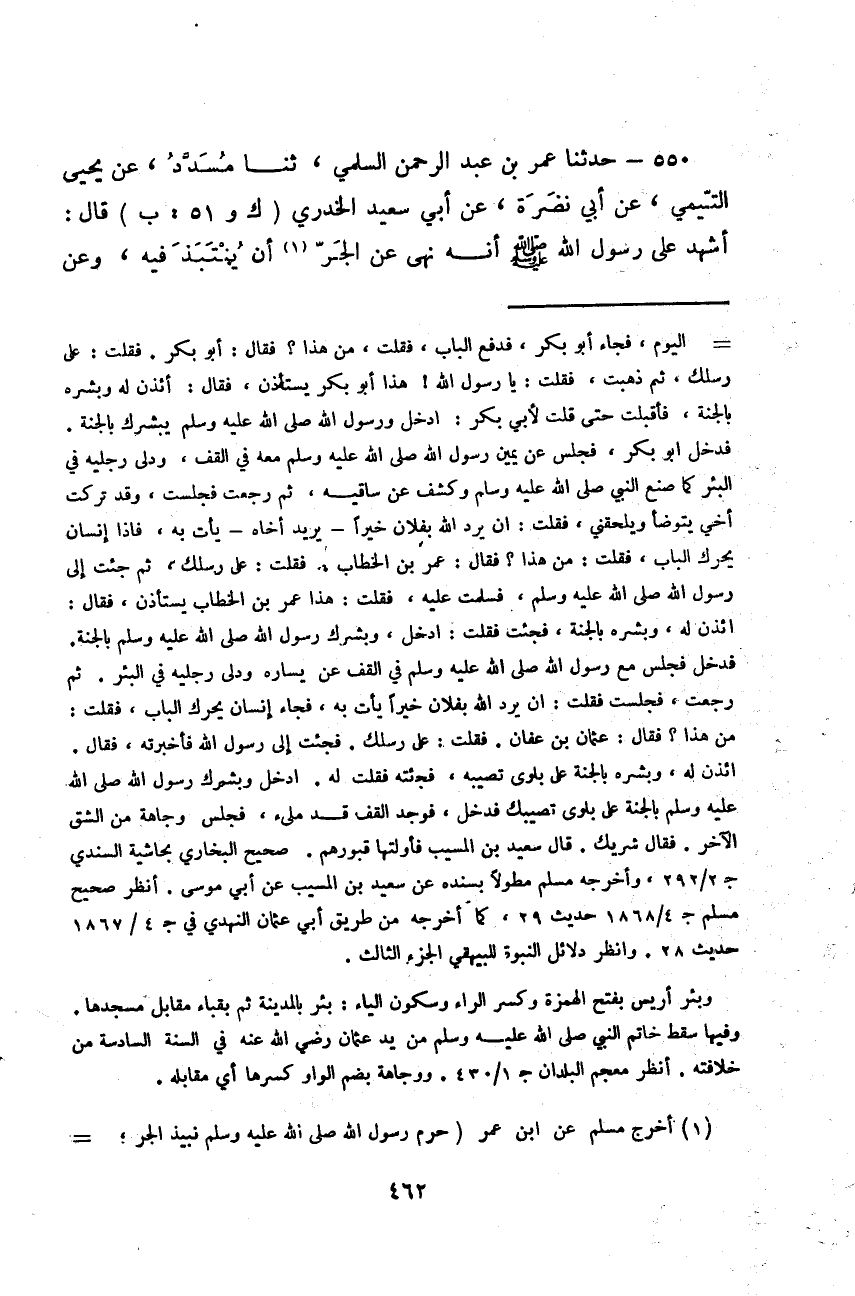 ٥٥٠ – حدثنا عمر بن عبد الرحمن السلمي ، ثنـا مُسَدَّدُ ، عن يحيى
التَّيمي ، عن أبي نضَرَة ، عن أبي سعيد الخدري ( ك و ٥١ : ب ) قال :
أشهد على رسول الله ﷺ أنـه نهى عن الجَرّ (١) أن يُنْتَبَذَ فيه ، وعن
= اليوم ، فجاء أبو بكر ، فدفع الباب ، فقلت ، من هذا ؟ فقال : أبو بكر . فقلت : على
رسلك ، ثم ذهبت ، فقلت : يا رسول الله ! هذا أبو بكر يستأذن ، فقال : أئذن له وبشره
بالجنة ، فأقبلت حتى قلت لأبي بكر : ادخل ورسول الله صلى الله عليه وسلم يبشرك بالجنة .
فدخل ابو بكر ، فجلس عن يمين رسول الله صلى الله عليه وسلم معه في القف ، ودلى رجليه في
البئر كما صنع النبي صلى الله عليه وسلم وكشف عن ساقيـه ، ثم رجعت فجلست ، وقد تركت
أخي يتوضأ ويلحقني ، فقلت : ان يرد الله بفلان خيراً – يريد أخاه – يأت به ، فاذا إنسان
يحرك الباب ، فقلت : من هذا ؟ فقال : عمر بن الخطاب . فقلت : على رسلك ، ثم جئت إلى
رسول الله صلى الله عليه وسلم ، فسلمت عليه ، فقلت : هذا عمر بن الخطاب يستأذن ، فقال :
ائذن له ، وبشره بالجنة ، فجئت فقلت : ادخل ، وبشرك رسول الله صلى الله عليه وسلم بالجنة.
فدخل فجلس مع رسول الله صلى الله عليه وسلم في القف عن يساره ودلى رجليه في البئر . ثم
رجعت ، فجلست فقلت : ان يرد الله بفلان خيراً يأت به ، فجاء إنسان يحرك الباب ، فقلت :
من هذا ؟ فقال : عثمان بن عفان . فقلت : على رسلك . فجئت إلى رسول الله فأخبرته ، فقال .
ائذن له ، وبشره بالجنة على بلوى تصيبه ، فجئته فقلت له . ادخل وبشرك رسول الله صلى الله
عليه وسلم بالجنة على بلوى تصيبك فدخل ، فوجد القف قـد ملىء ، فجلس وجاهة من الشق
الآخر . فقال شريك . قال سعيد بن المسيب فأولتها قبورهم . صحيح البخاري بحاشية السندي
جـ ٢٩٢/٢ ، وأخرجه مسلم مطولاً بسنده عن سعيد بن المسيب عن أبي موسى . أنظر صحيح
مسلم جـ ١٨٦٨/٤ حديث ٢٩ ، كما أخرجه من طريق أبي عثمان النهدي في جـ ٤ / ١٨٦٧
حديث ٢٨ . وانظر دلائل النبوة للبيهقي الجزء الثالث .
وبئر أريس بفتح الهمزة وكسر الراء وسكون الياء : بئر بالمدينة ثم بقباء مقابل مسجدها .
وفيها سقط خاتم النبي صلى الله عليـه وسلم من يد عثمان رضي الله عنه في السنة السادسة من
خلافته . أنظر معجم البلدان جـ ٤٣٠/١ . ووجاهة بضم الواو كسرها أي مقابله .
(١) أخرج مسلم عن ابن عمر ( حرم رسول الله صلى الله عليه وسلم نبيذ الجر ؛ =
٤٦٢